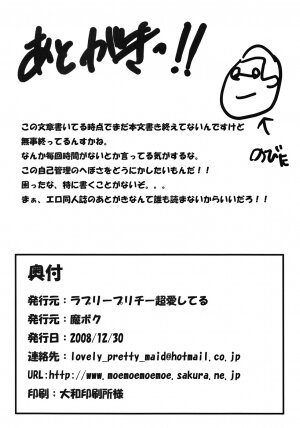 あとがきっ!!
のびた
この文章書いてる時点でまだ本文書き終えてないんですけど
無事終ってるんすかね。
なんか毎回時間がないとか言ってる気がするな。
この自己管理のへぼさをどうにかしたいもんだ!!
困ったな、特に書くことがないぞ...
まぁ、エロ同人誌のあとがきなんて誰も読まないからいいだろ!!
奥付
発行元:ラブリープリチー超愛してる
発行元:魔ボク
発行日:2008/12/30
連絡先:lovely_pretty_maid@hotmail.co.jp
URL:http://www.moemoemoemoe.sakura.ne.jp
印刷:大和印刷所様